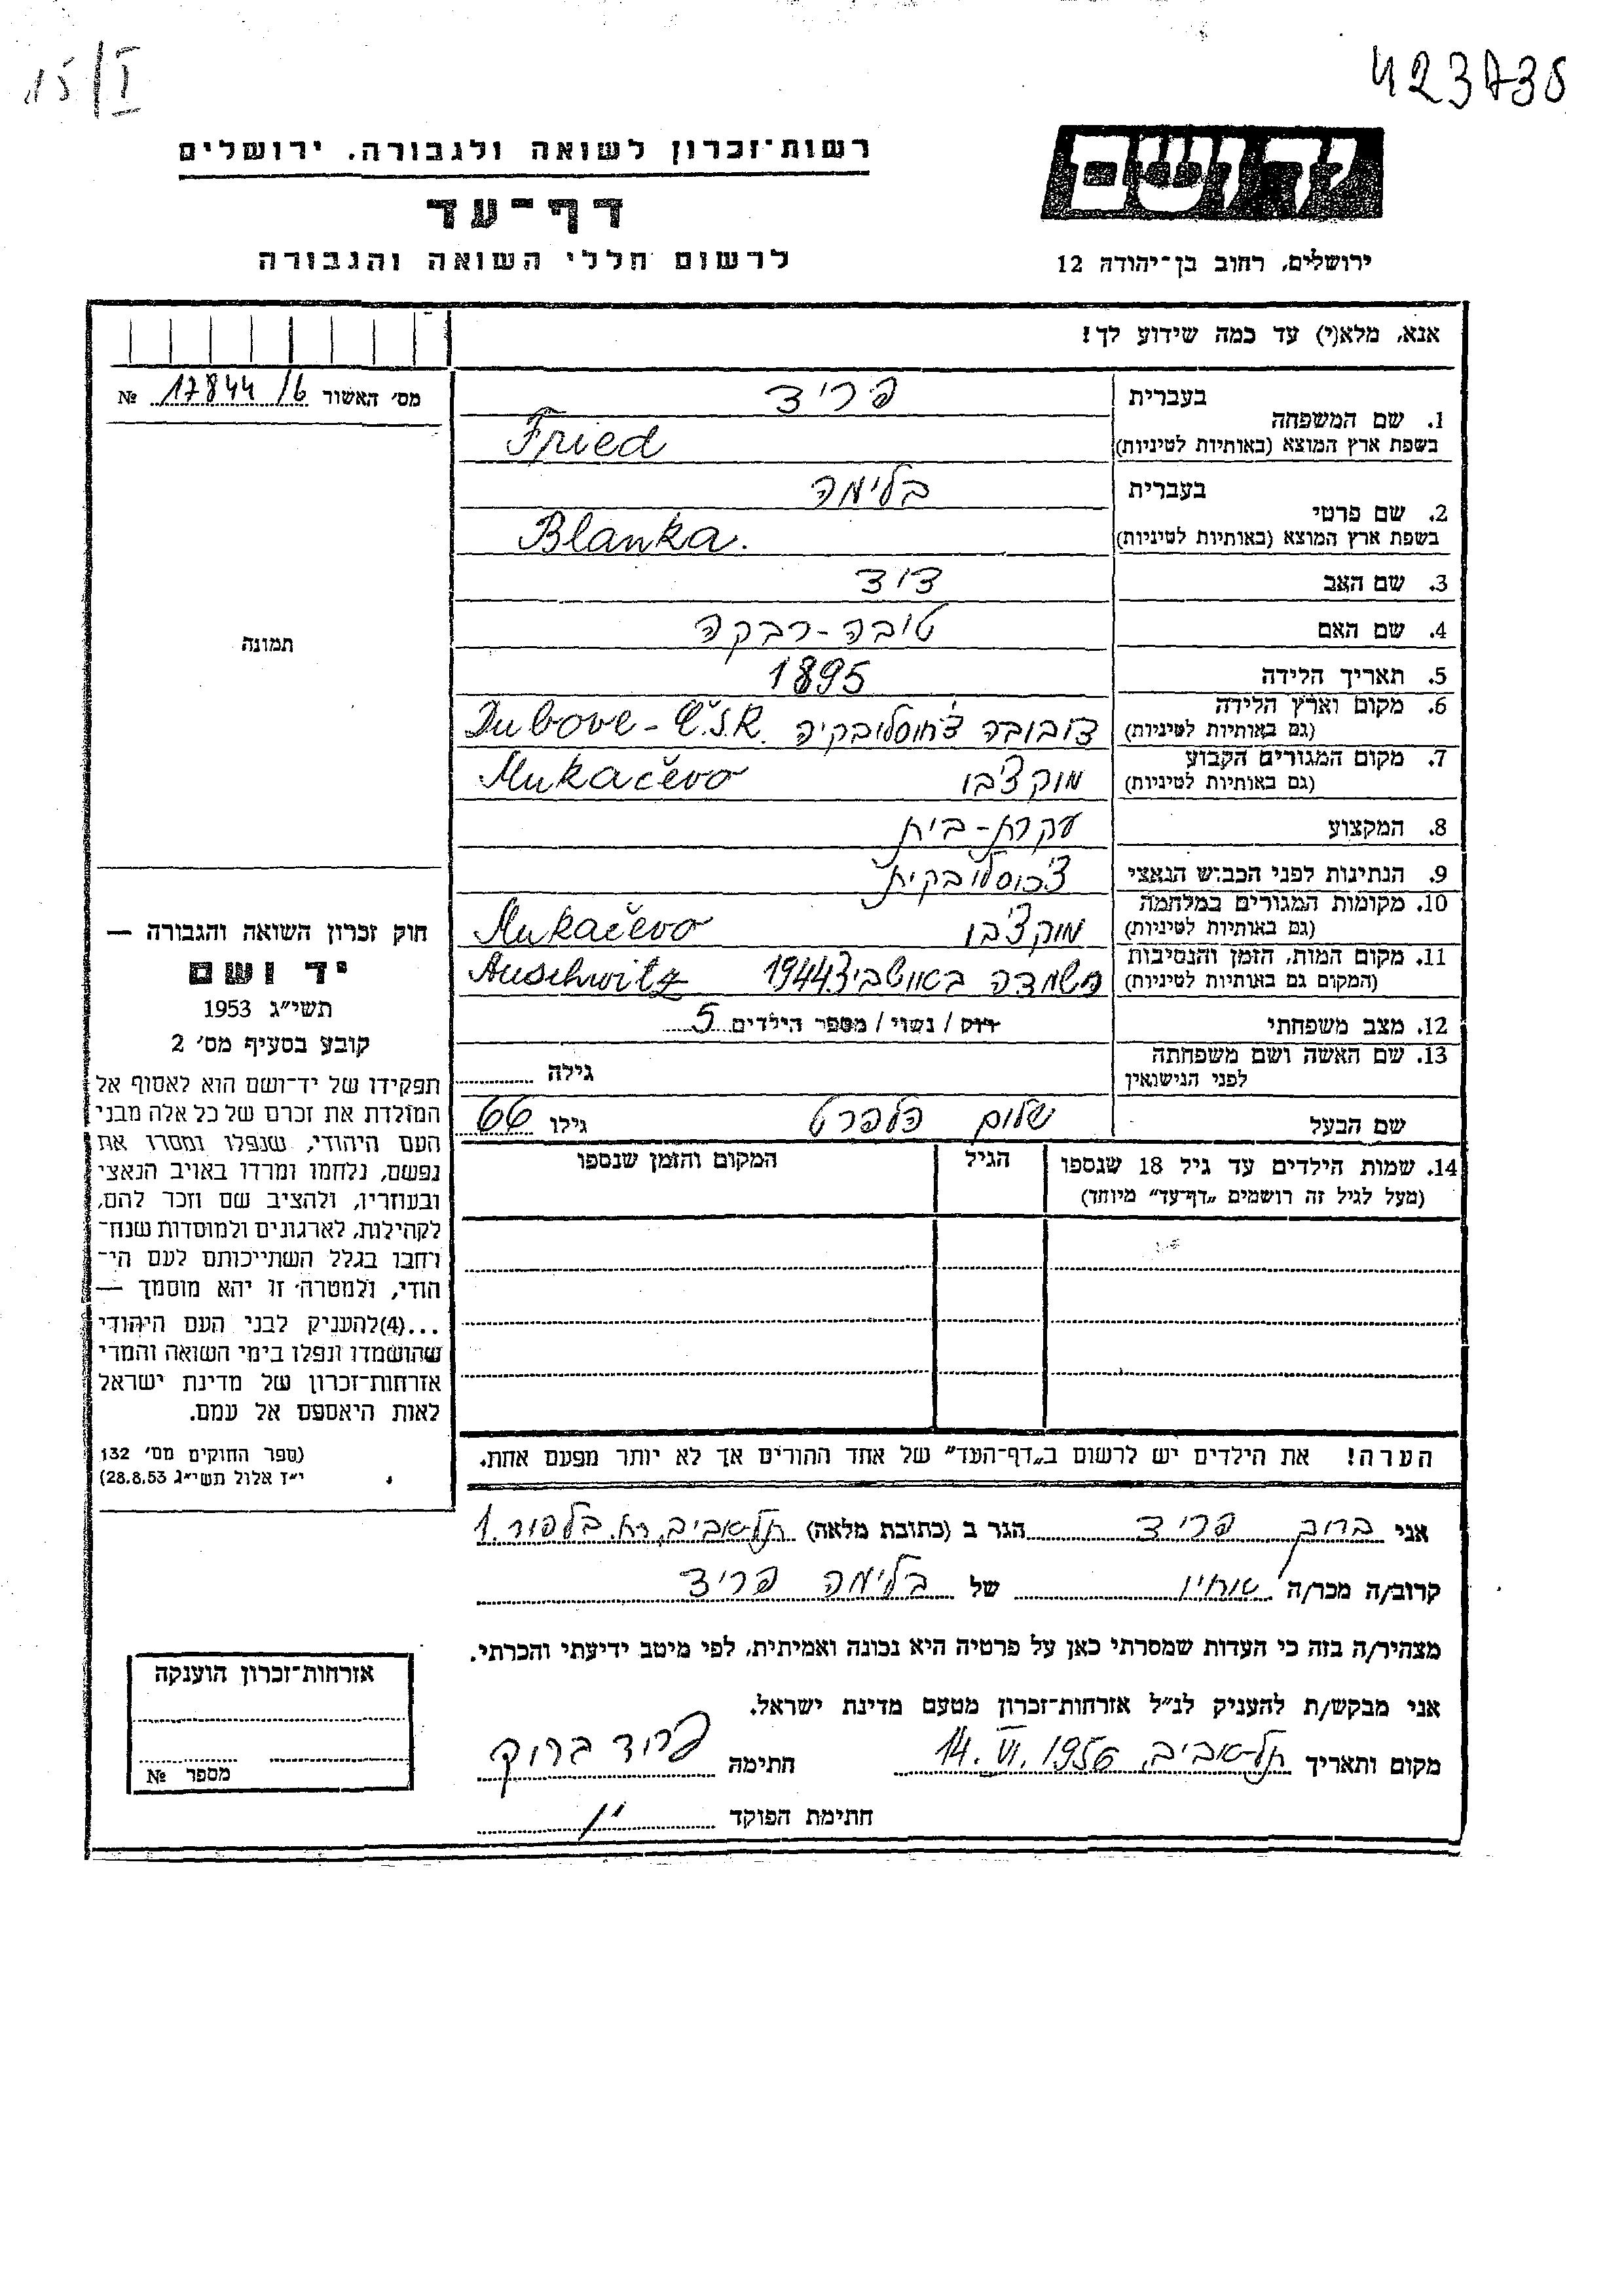 15/I
423738
יד ושם
ירושלים, רחוב בן־יהודה 12
רשות־זכרון לשואה ולגבורה, ירושלים
דף־עד
לרשום חללי השואה והגבורה
אנא, מלא(י) עד כמה שידוע לך!
מס׳ האשור 17844/6 №
תמונה
1. שם המשפחה
בעברית פריד
בשפת ארץ המוצא (באותיות לטיניות) Fried
2. שם פרטי
בעברית בלימה
בשפת ארץ המוצא (באותיות לטיניות) Blanka.
3. שם האב דוד
4. שם האם טובה-רבקה
5. תאריך הלידה 1895
6. מקום וארץ הלידה
(גם באותיות לטיניות) דובובה צ'חוסלובקיה Dubove - Č.S.R.
7. מקום המגורים הקבוע
(גם באותיות לטיניות) מוקצ'בו Mukačevo
8. המקצוע עקרת-בית
9. הנתינות לפני הכבוש הנאצי צ'כוסלובקית
10. מקומות המגורים במלחמה
(גם באותיות לטיניות) מוקצ'בו Mukačevo
11. מקום המות, הזמן והנסיבות
(המקום גם באותיות לטיניות) השמדה באושביץ 1944 Auschwitz
12. מצב משפחתי רוק / נשוי / מספר הילדים 5
13. שם האשה ושם משפחתה
לפני הנישואין גילה
שם הבעל שלום גילו 66
14. שמות הילדים עד גיל 18 שנספו
(מעל לגיל זה רושמים „דף־עד״ מיוחד)
הגיל
המקום והזמן שנספו
הערה! את הילדים יש לרשום ב„דף־העד״ של אחד ההורים אך לא יותר מפעם אחת.
חוק זכרון השואה והגבורה —
יד ושם
תשי״ג 1953
קובע בסעיף מס׳ 2
תפקידו של יד־ושם הוא לאסוף אל
המולדת את זכרם של כל אלה מבני
העם היהודי, שנפלו ומסרו את
נפשם, נלחמו ומרדו באויב הנאצי
ובעוזריו, ולהציב שם וזכר להם,
לקהילות, לארגונים ולמוסדות שנח־
רבו בגלל השתייכותם לעם הי־
הודי, ולמטרה זו יהא מוסמך —
...(4)להעניק לבני העם היהודי
שהושמדו ונפלו בימי השואה והמרי
אזרחות־זכרון של מדינת ישראל
לאות היאספם אל עמם.
(ספר החוקים מס׳ 132
י״ז אלול תשי״ג 28.8.53)
אני ברוך פריד הגר ב (כתובת מלאה) תל-אביב, רח. בלפור 1
קרוב/ה מכר/ה אחיו של בלימה פריד
מצהיר/ה בזה כי העדות שמסרתי כאן על פרטיה היא נכונה ואמיתית, לפי מיטב ידיעתי והכרתי.
אני מבקש/ת להעניק לנ״ל אזרחות־זכרון מטעם מדינת ישראל.
מקום ותאריך תל-אביב, 14. VI. 1956 חתימה פריד ברוך
חתימת הפוקד
אזרחות־זכרון הוענקה
מספר №